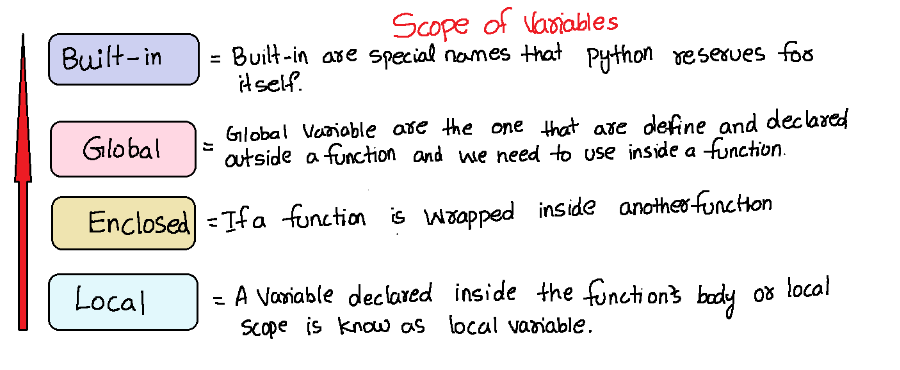 Scope of Variables
Built-in = Built-in are special names that python reserves for
itself.
Global = Global Variable are the one that are define and declared
outside a function and we need to use inside a function.
Enclosed = If a function is wrapped inside another function
Local = A Variable declared inside the function's body or local
scope is know as local variable.